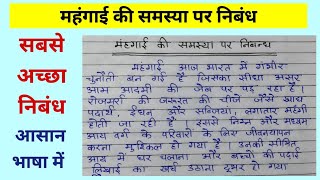 महंगाई की समस्या पर निबंध
सबसे
अच्छा
निबंध
आसान
भाषा में
महंगाई की समस्या पर निबन्ध
महंगाई आज भारत में गंभीर
चुनौती बन गई है जिसका सीधा असर
आम आदमी की जेब पर पड़ रहा है।
रोजमर्रा की जरूरत की चीजें जैसे खाद्य
पदार्थ, ईंधन और सब्जियां, लगातार महंगी
होती जा रही है। इससे निम्न और मध्यम
आय वर्ग के परिवारों के लिए जीवनयापन
करना मुश्किल हो गया है। उनकी सीमित
आय में घर चलाना और बच्चों की पढ़ाई
लिखाई का खर्च उठाना दूभर हो गया